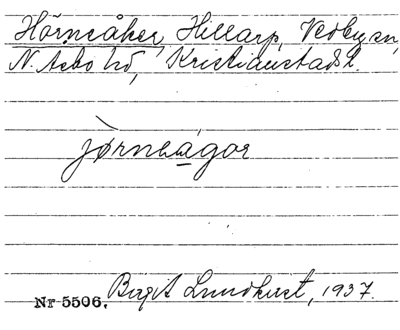 Hörneåker, Hillarp, Vedby sn,
N. Åsbo hd, Kristianstads l.
jørneagor
Nr 5506. Birgit Lundkvist, 1937.